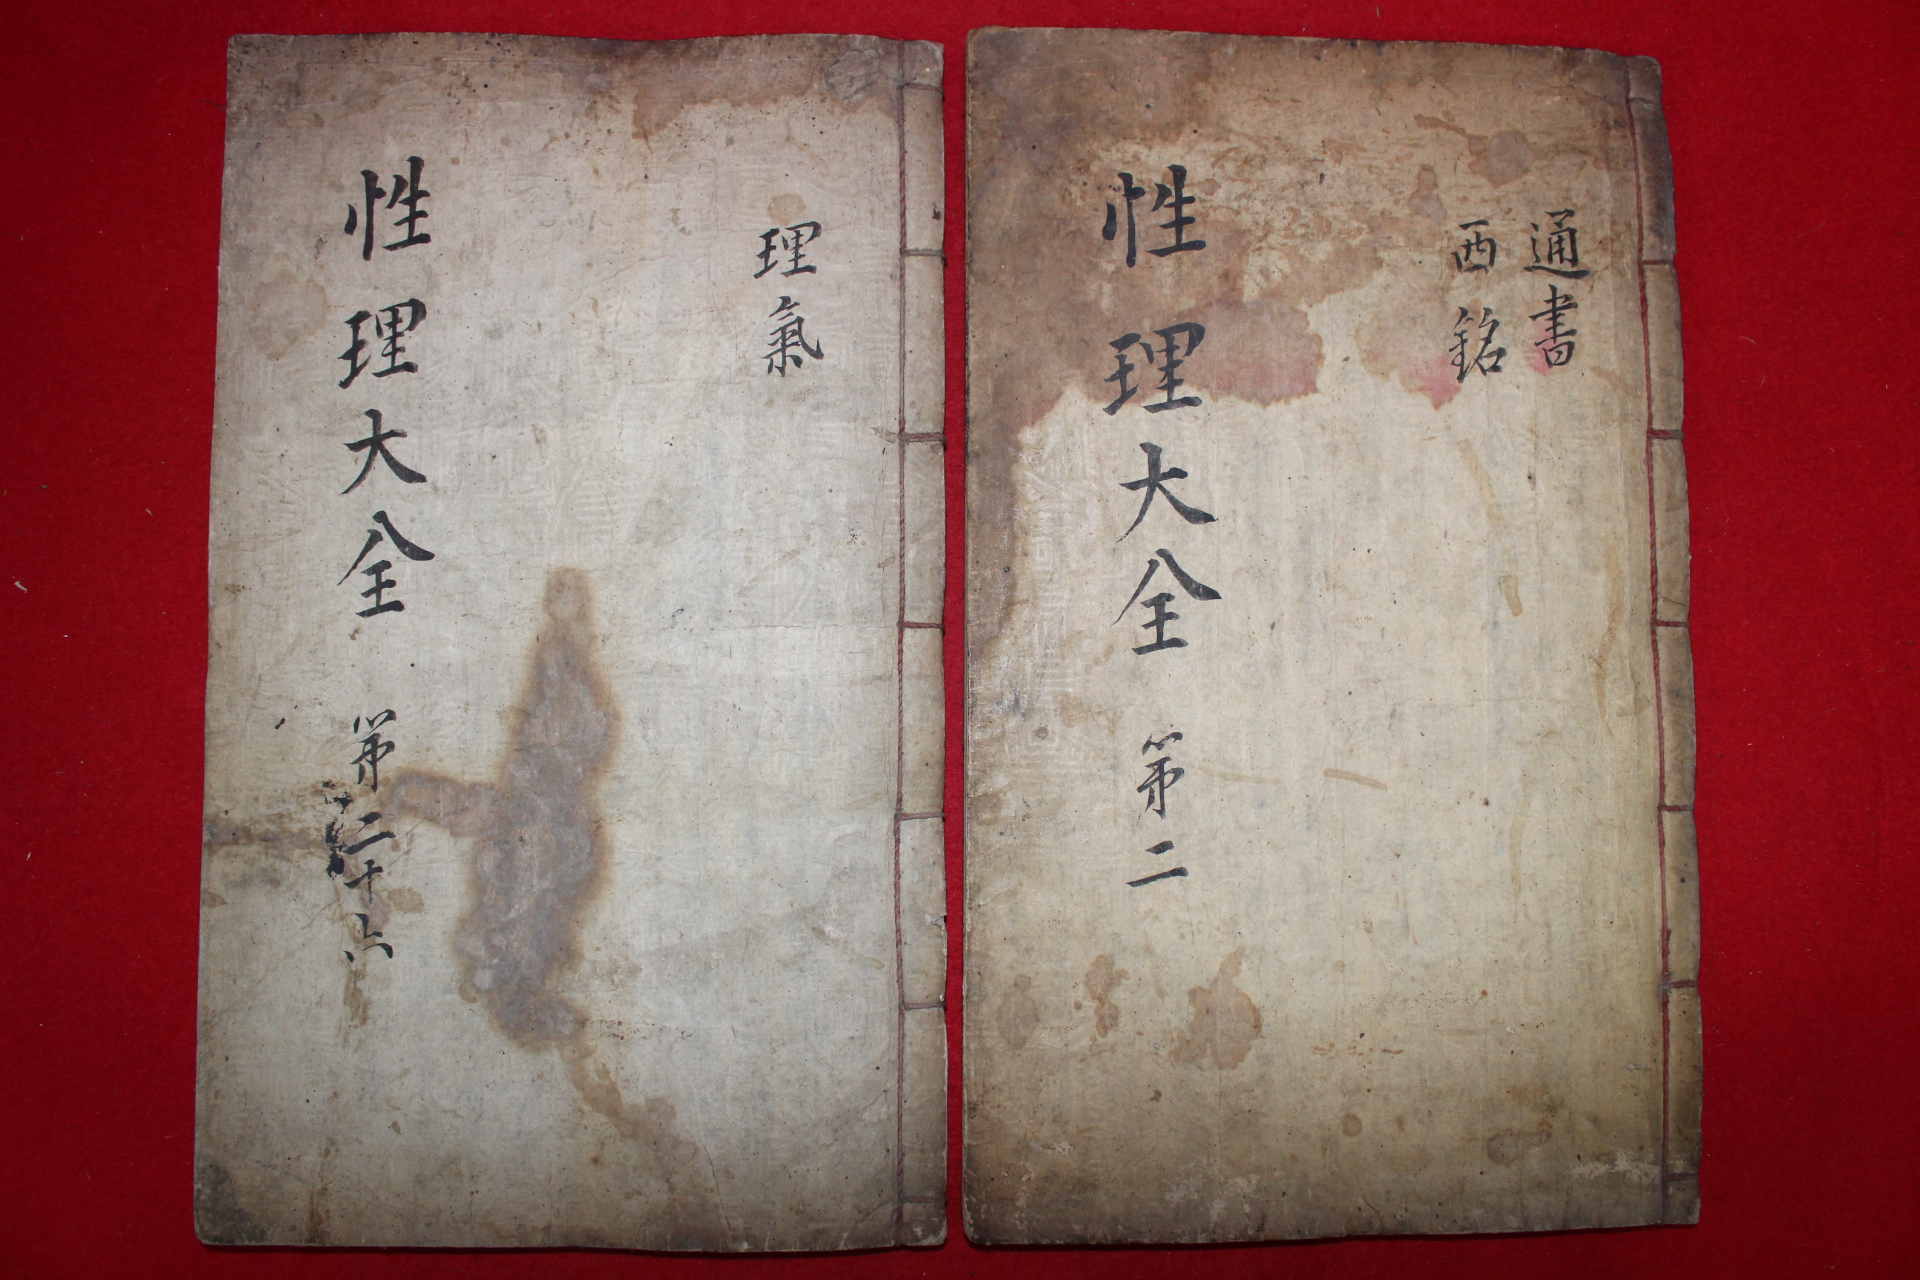 通書
西銘
性理大全 第二
理氣
性理大全 第二十六